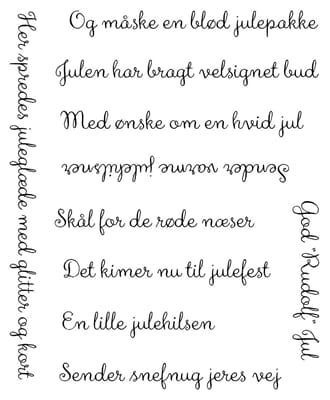 Her spredes juleglæde med glitter og kort
Og måske en blød julepakke
Julen har bragt velsignet bud
Med ønske om en hvid jul
Sender varme julehilsner
Skål for de røde næser
Det kimer nu til julefest
En lille julehilsen
Sender snefnug jeres vej
God "Rudolf" Jul